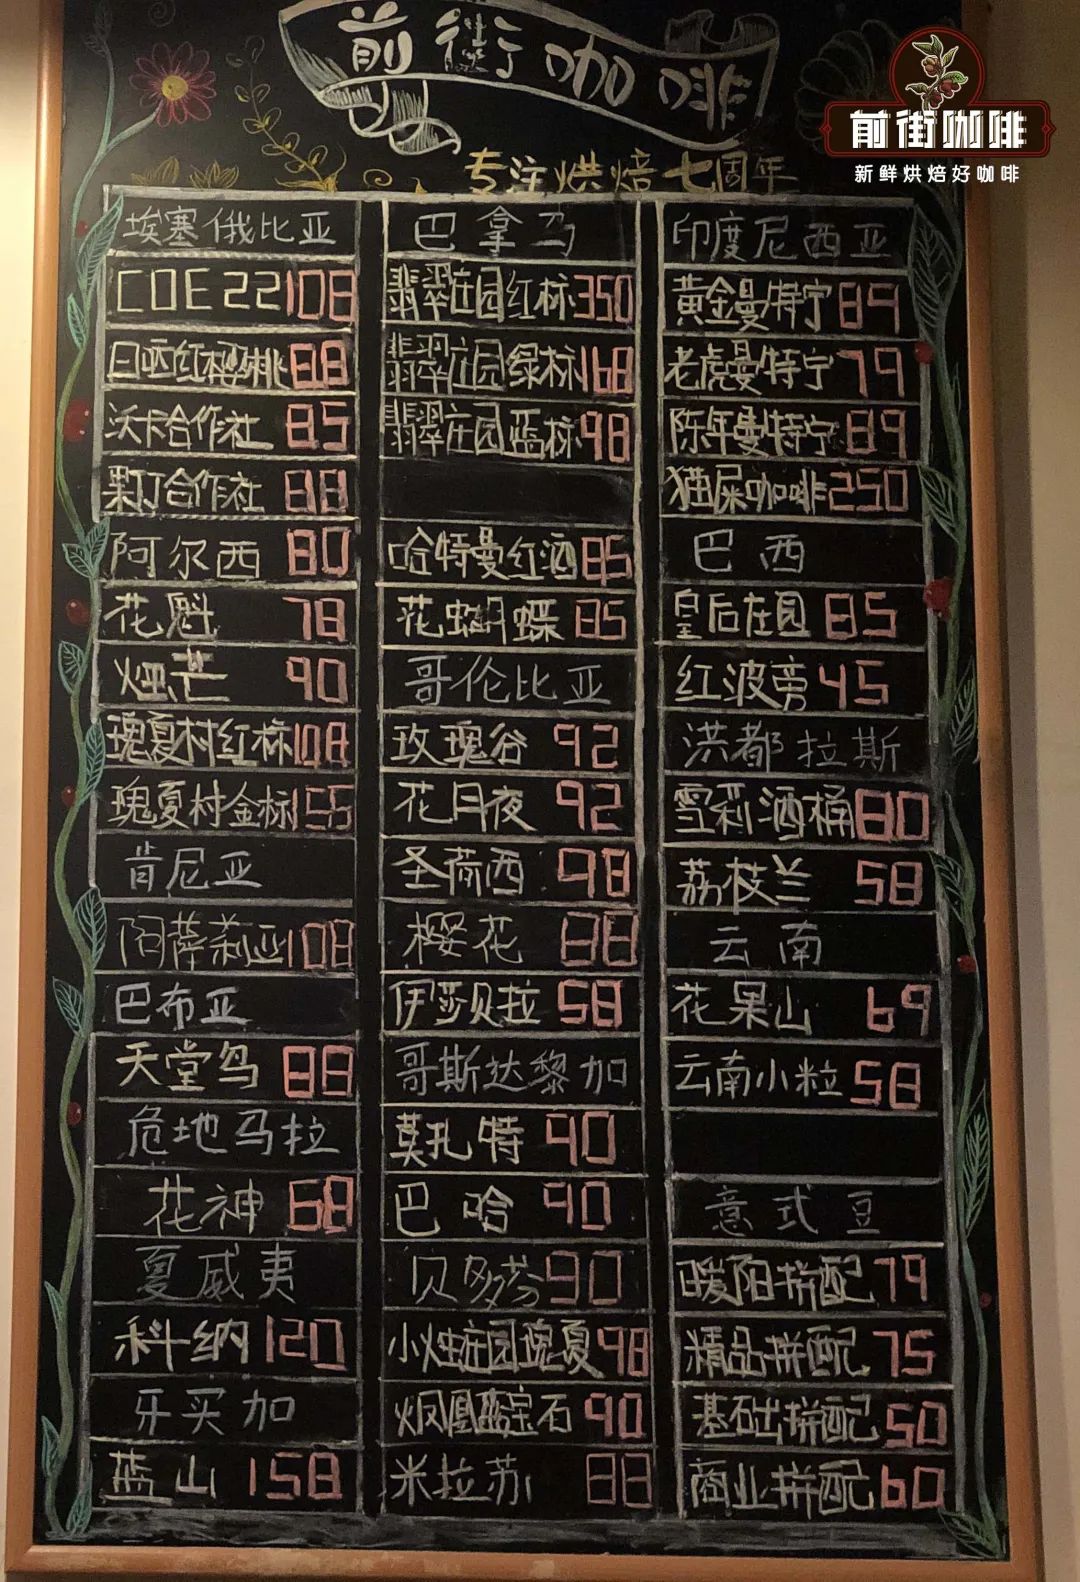 前街咖啡
前街咖啡
新鲜烘焙好咖啡
专注烘焙七周年
埃塞俄比亚
COE22 108
日晒红樱桃 88
沃卡合作社 85
果丁丁合作社 88
阿尔西 80
花魁 78
烛芒 90
瑰夏村红标 108
瑰夏村金标 155
肯尼亚
阿萨莉亚 108
巴布亚
天堂鸟 88
危地马拉
花神 68
夏威夷
科纳 120
牙买加
蓝山 158
巴拿马
翡翠庄园红标 350
翡翠庄园绿标 168
翡翠庄园蓝标 98
哈特曼红酒 85
花蝴蝶 85
哥伦比亚
玫瑰谷 92
花月夜 92
圣荷西 98
樱花 88
伊莎贝拉 58
哥斯达黎加
莫扎特 90
巴哈 90
贝多芬 90
小烛庄园瑰夏 98
火凤凰蓝宝石 90
米拉苏 88
印度尼西亚
黄金曼特宁 89
老虎曼特宁 79
陈年曼特宁 89
猫屎咖啡 250
巴西
皇后庄园 85
红波旁 45
洪都拉斯
雪莉酒桶 80
荔枝兰 58
云南
花果山 69
云南小粒 58
意式豆
暖阳拼配 79
精品拼配 75
基础拼配 50
商业拼配 60